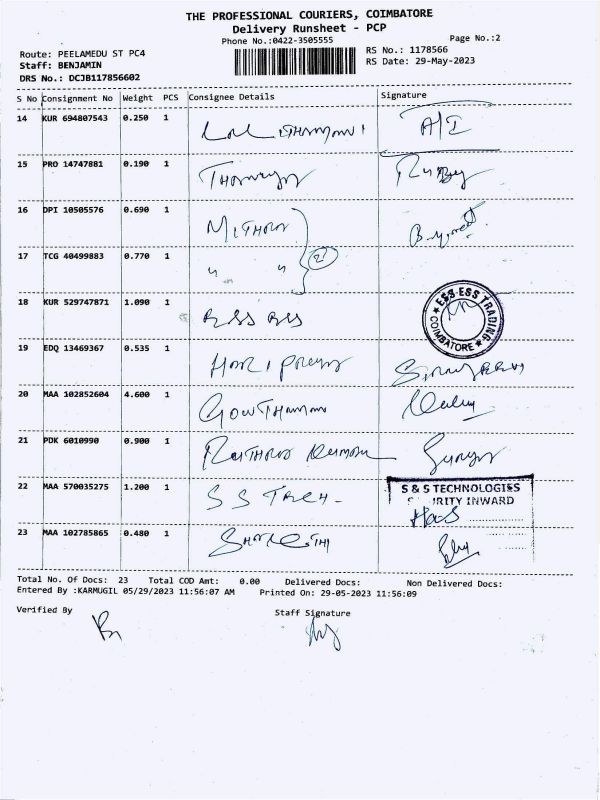 THE PROFESSIONAL COURIERS, COIMBATORE
Delivery Runsheet - PCP
Phone No.:0422-3505555
Page No.:2
Route: PEELAMEDU ST PC4
RS No.: 1178566
Staff: BENJAMIN
RS Date: 29-May-2023
DRS No.: DCJB117856602
S No Consignment No Weight PCS Consignee Details Signature
14 KUR 694807543 0.250 1 A/I
15 PRO 14747881 0.190 1
16 DPI 10505576 0.690 1 MITHRA
17 TCG 40499883 0.770 1 " " 2
18 KUR 529747871 1.090 1
ESS ESS TRADING
COIMBATORE
19 EDQ 13469367 0.535 1 HARI PRIYA
20 MAA 102852604 4.600 1 GOWTHAMAN
21 PDK 6010990 0.900 1 Surya
22 MAA 570035275 1.200 1 S S TECH -
S & S TECHNOLOGIES
INWARD
23 MAA 102785865 0.480 1
Total No. Of Docs: 23 Total COD Amt: 0.00 Delivered Docs: Non Delivered Docs:
Entered By :KARMUGIL 05/29/2023 11:56:07 AM Printed On: 29-05-2023 11:56:09
Verified By
Staff Signature